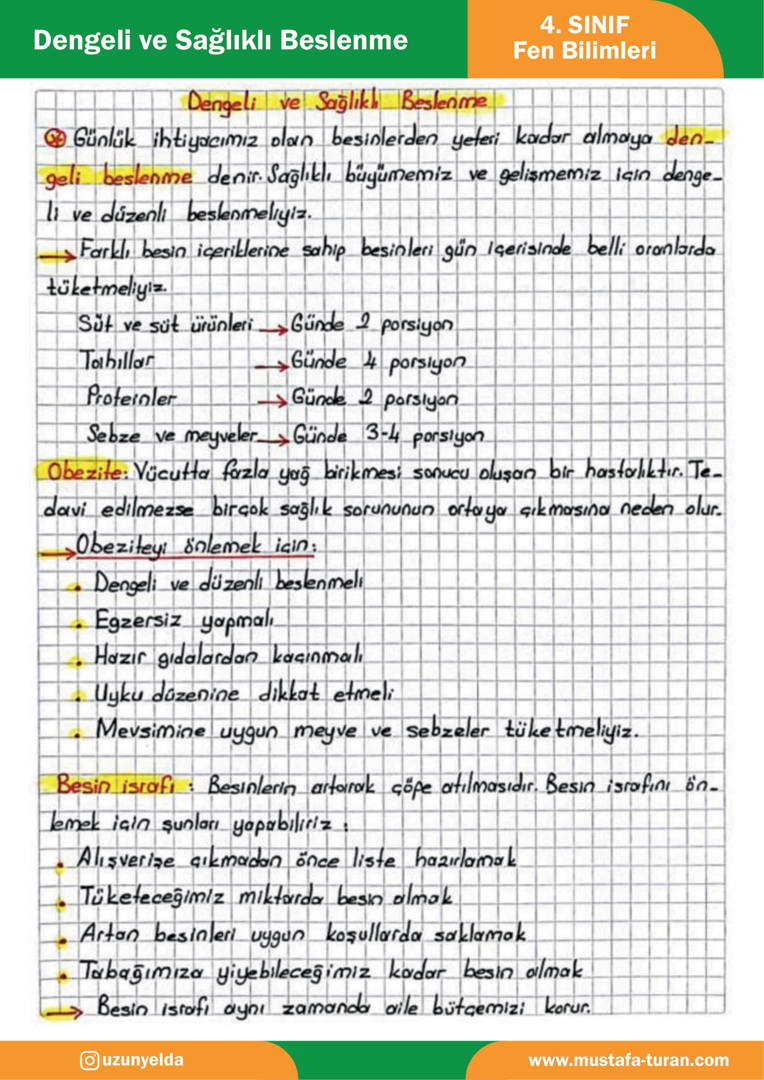 Dengeli ve Sağlıklı Beslenme
4. SINIF
Fen Bilimleri
Dengeli ve Sağlıklı Beslenme
Günlük ihtiyacımız olan besinlerden yeteri kadar almaya den-
geli beslenme denir. Sağlıklı büyümemiz ve gelişmemiz için denge-
li ve düzenli beslenmeliyiz.
→ Farklı besin içeriklerine sahip besinleri gün içerisinde belli oranlarda
tüketmeliyiz.
Süt ve süt ürünleri → Günde 2 porsiyon
Tahıllar → Günde 4 porsiyon
Proteinler → Günde 2 porsiyon
Sebze ve meyveler → Günde 3-4 porsiyon
Obezite: Vücutta fazla yağ birikmesi sonucu oluşan bir hastalıktır. Te-
davi edilmezse birçok sağlık sorununun ortaya çıkmasına neden olur.
→ Obeziteyi önlemek için:
• Dengeli ve düzenli beslenmeli
• Egzersiz yapmalı
• Hazır gıdalardan kaçınmalı
• Uyku düzenine dikkat etmeli
• Mevsimine uygun meyve ve sebzeler tüketmeliyiz.
Besin israfı : Besinlerin artarak çöpe atılmasıdır. Besin israfını ön-
lemek için şunları yapabiliriz :
• Alışverişe çıkmadan önce liste hazırlamak
• Tüketeceğimiz miktarda besin almak
• Artan besinleri uygun koşullarda saklamak
• Tabağımıza yiyebileceğimiz kadar besin almak
→ Besin israfı aynı zamanda aile bütçemizi korur.
uzunyelda
www.mustafa-turan.com